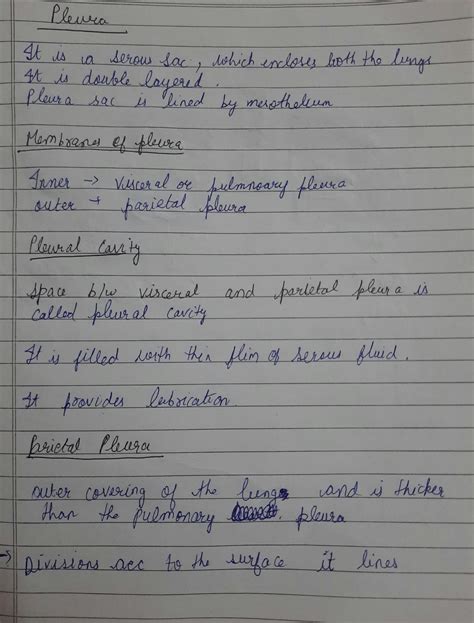 Pleura
It is a serous sac, which encloses both the lungs
It is double layered.
Pleura sac is lined by mesothelium
Membranes of pleura
Inner → visceral or pulmnoary pleura
outer → parietal pleura
Pleural Cavity
space b/w visceral and parietal pleura is
called pleural cavity
It is filled with thin flim of serous fluid.
It provides lubrication.
Parietal Pleura
outer covering of the lungs and is thicker
than the pulmonary pleura
→ Divisions acc to the surface it lines